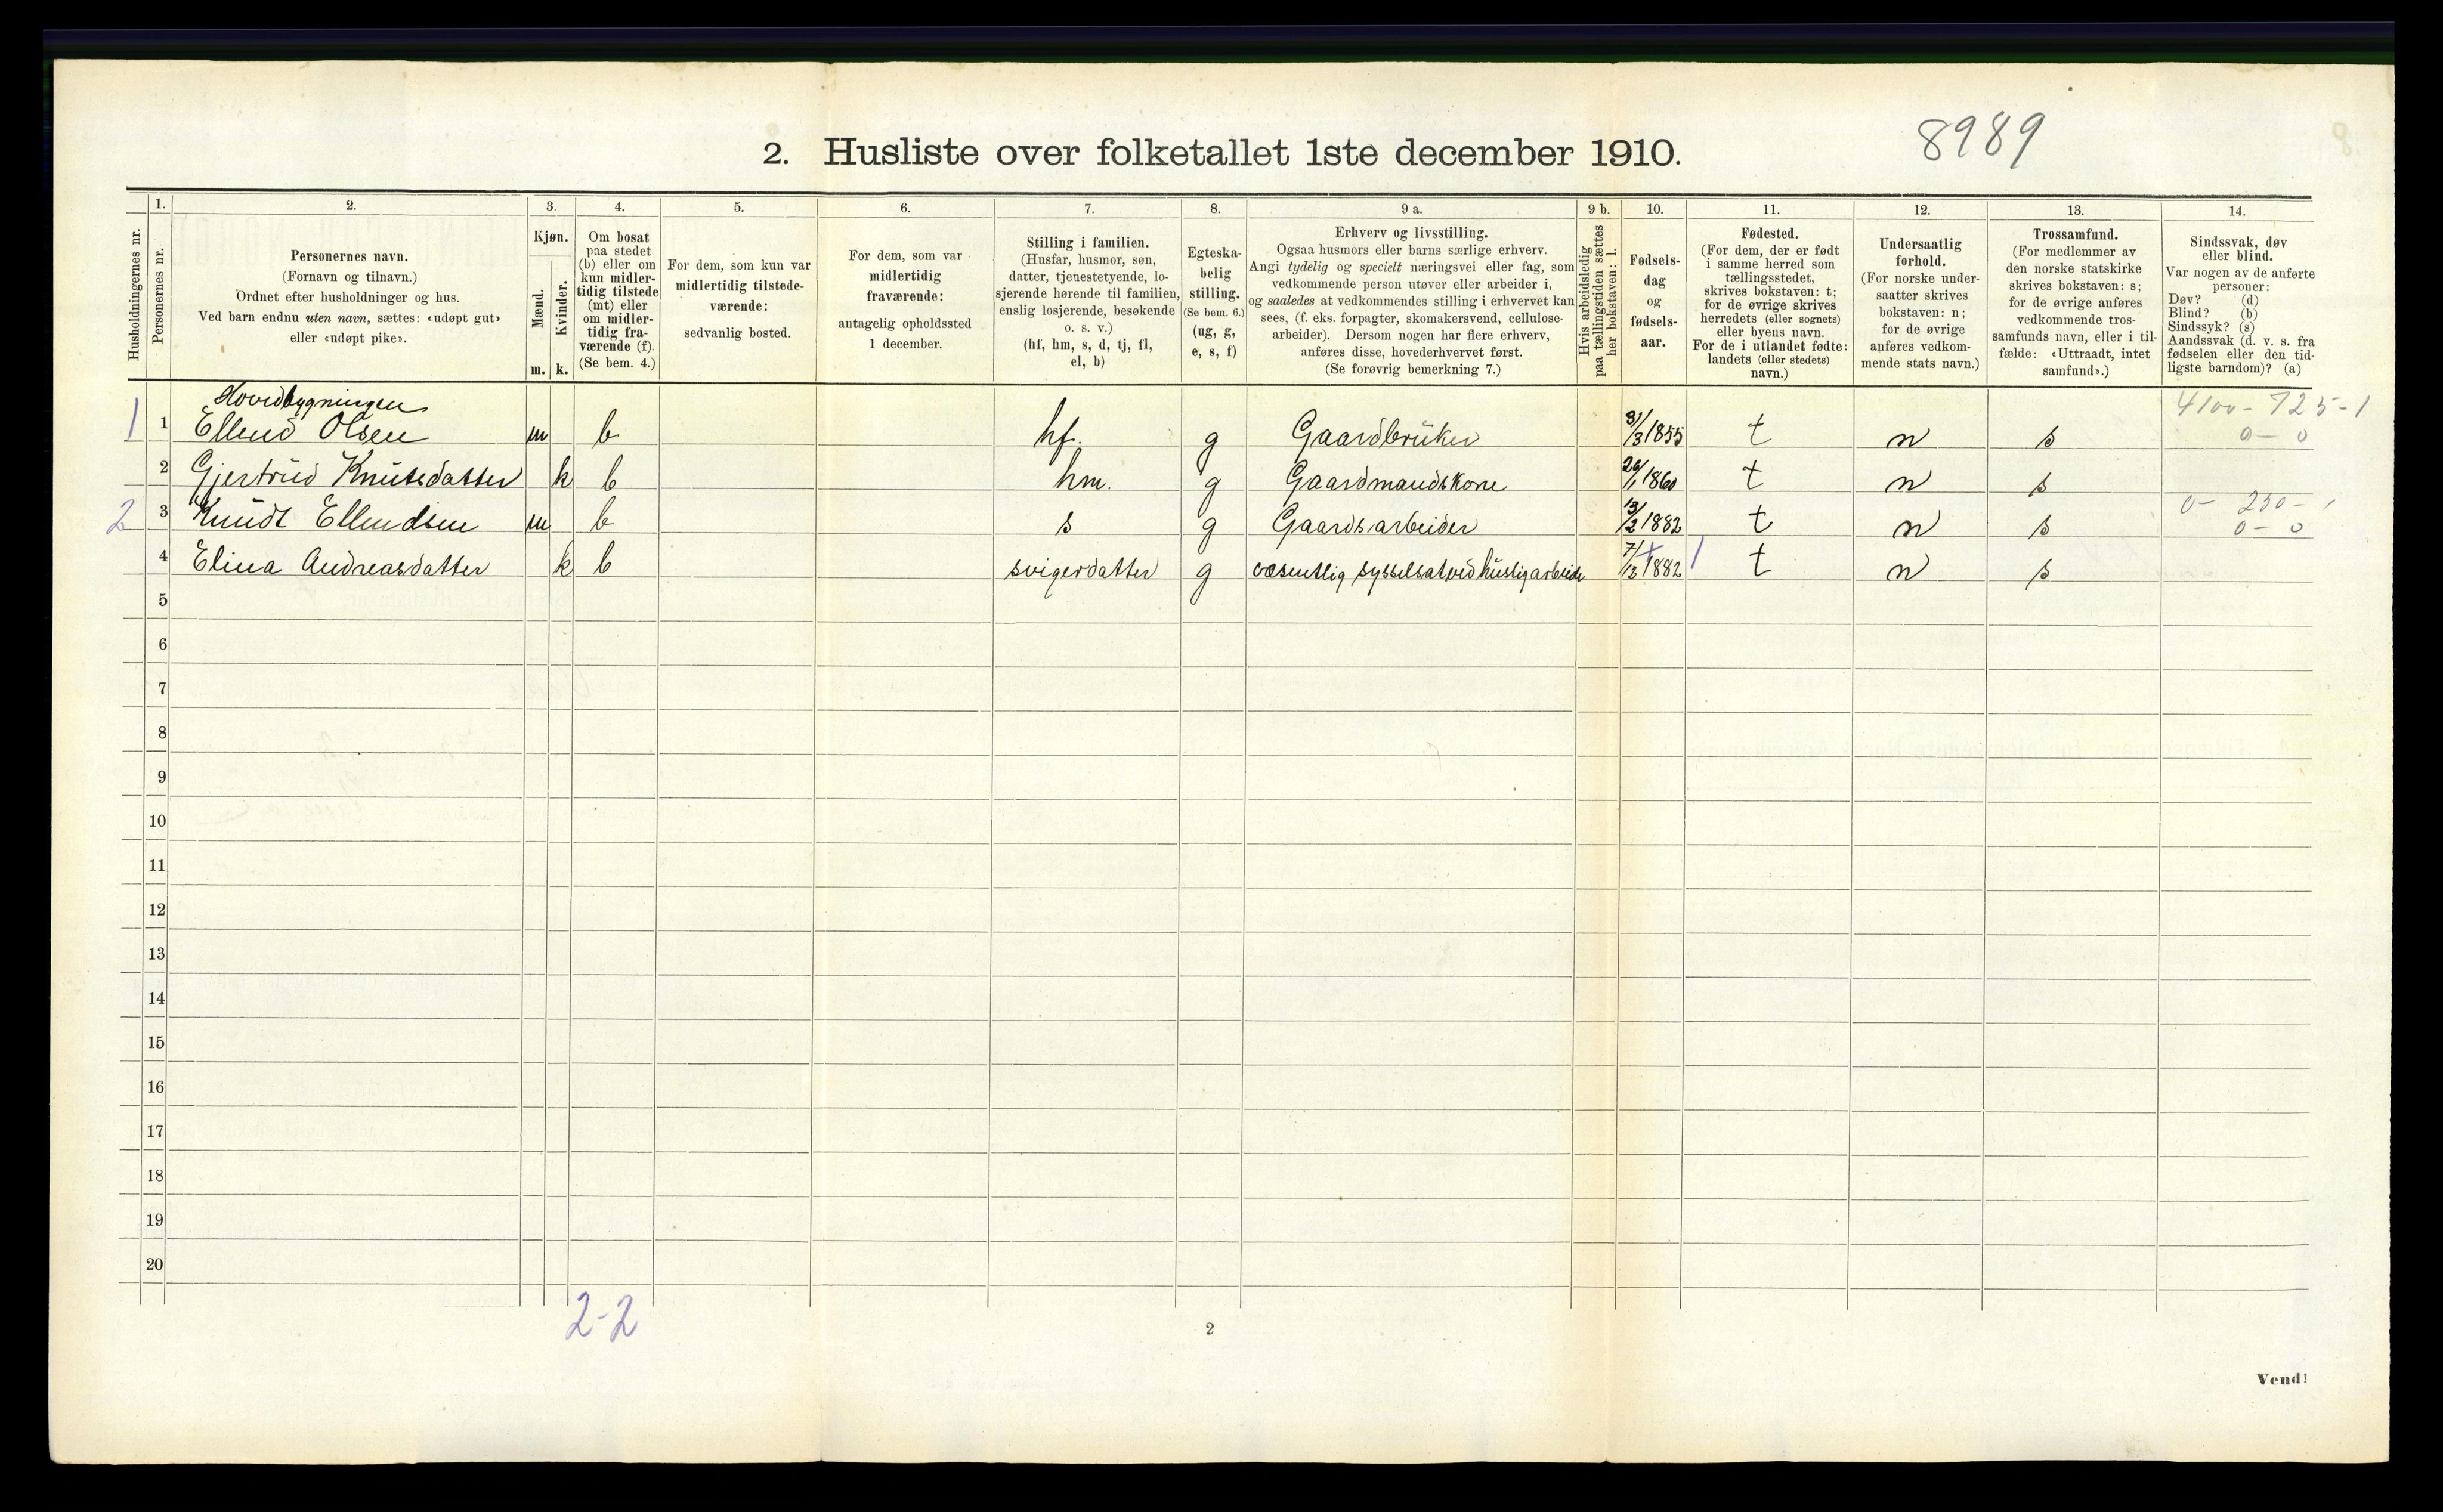 8989
2. Husliste over folketallet 1ste december 1910.
Husholdningernes nr.
1.
Personernes nr.
2.
Personernes navn.
(Fornavn og tilnavn.)
Ordnet efter husholdninger og hus.
Ved barn endnu uten navn, sættes: «udøpt gut»
eller «udøpt pike».
3.
Kjøn.
Mænd.
Kvinder.
m. k.
4.
Om bosat
paa stedet
(b) eller om
kun midler-
tidig tilstede
(mt) eller
om midler-
tidig fra-
værende (f).
(Se bem. 4.)
5.
For dem, som kun var
midlertidig tilstede-
værende:
sedvanlig bosted.
6.
For dem, som var
midlertidig
fraværende:
antagelig opholdssted
1 december.
7.
Stilling i familien.
(Husfar, husmor, søn,
datter, tjenestetyende, lo-
sjerende hørende til familien,
enslig losjerende, besøkende
o. s. v.)
(hf, hm, s, d, tj, fl,
el, b)
8.
Egteska-
belig
stilling.
(Se bem. 6.)
(ug, g,
e, s, f)
9 a.
Erhverv og livsstilling.
Ogsaa husmors eller barns særlige erhverv.
Angi tydelig og specielt næringsvei eller fag, som
vedkommende person utøver eller arbeider i,
og saaledes at vedkommendes stilling i erhvervet kan
sees, (f. eks. forpagter, skomakersvend, cellulose-
arbeider). Dersom nogen har flere erhverv,
anføres disse, hovederhvervet først.
(Se forøvrig bemerkning 7.)
9 b.
Hvis arbeidsledig
paa tællingstiden sættes
her bokstaven: l.
10.
Fødsels-
dag
og
fødsels-
aar.
11.
Fødested.
(For dem, der er født
i samme herred som
tællingsstedet,
skrives bokstaven: t;
for de øvrige skrives
herredets (eller sognets)
eller byens navn.
For de i utlandet fødte:
landets (eller stedets)
navn.)
12.
Undersaatlig
forhold.
(For norske under-
saatter skrives
bokstaven: n;
for de øvrige
anføres vedkom-
mende stats navn.)
13.
Trossamfund.
(For medlemmer av
den norske statskirke
skrives bokstaven: s;
for de øvrige anføres
vedkommende tros-
samfunds navn, eller i til-
fælde: «Uttraadt, intet
samfund».)
14.
Sindssvak, døv
eller blind.
Var nogen av de anførte
personer:
Døv? (d)
Blind? (b)
Sindssyk? (s)
Aandssvak (d. v. s. fra
fødselen eller den tid-
ligste barndom)? (a)
Hovedbygningen
4100 - 725 - 1
1 1 Ellend Olsen m b hf. g Gaardbruker 3/3 1855 t n s 0 - 0
2 Gjertrud Knutsdatter k b hm. g Gaardmandskone 1860 t n s
0 - 250 - 1
2 3 Knudt Ellendsen m b s g Gaardsarbeider 13/2 1882 t n s 0 - 0
4 Elina Andreasdatter k b svigerdatter g væsentlig sysselsat ved huslig arbeide 7/12 1882 1 t n s
5
6
7
8
9
10
11
12
13
14
15
16
17
18
19
20
2-2
2
Vend!